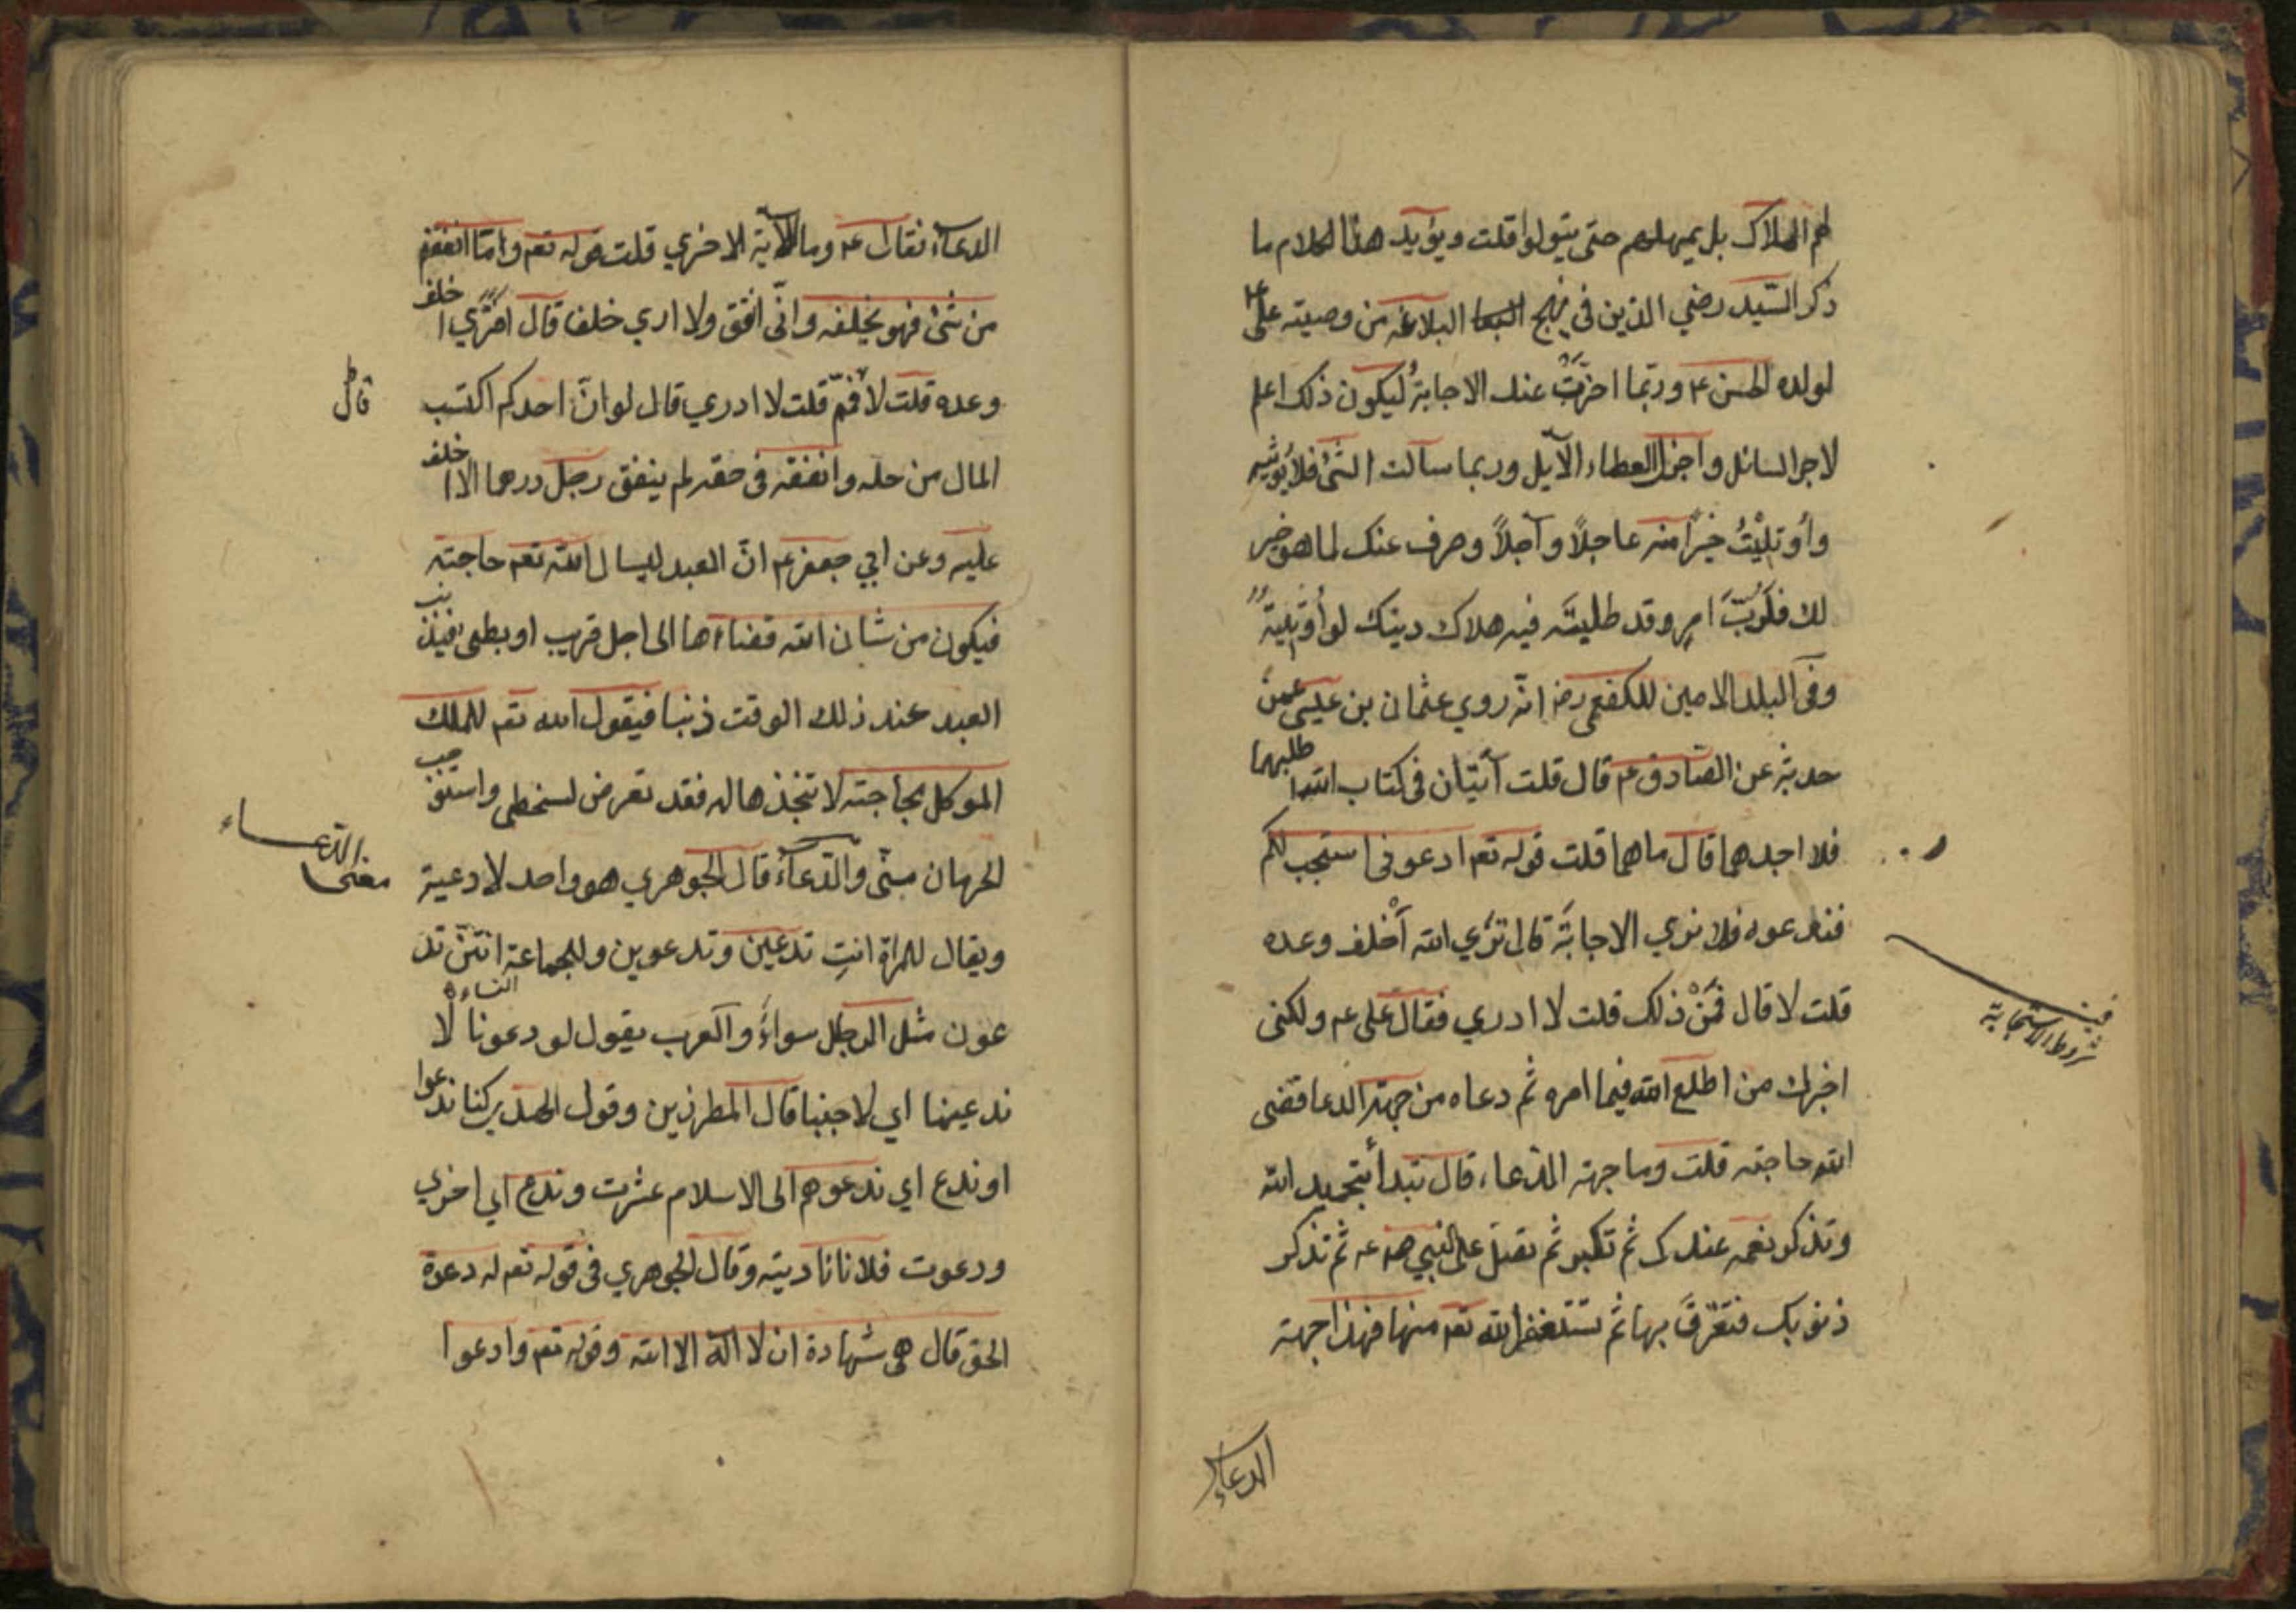 لهم الهلاك بل يمهلهم حتى يتولوا قلت ويؤيد هذا الكلام ما
ذكر السيد رضي الدين في نهج البلاغة من وصيته على ع
لولده الحسن ع وربما اخرت عنك الاجابة ليكون ذلك اعظم
لاجر السائل واجزل العطاء الآيل وربما سألت الشئ فلا تؤتيه
وأوتيت خيرًا منه عاجلًا وآجلًا وصرف عنك لما هو خير
لك فلربّ امر وقد طلبته فيه هلاك دينك لو أوتيته
وفي البلد الامين للكفعمي رض انه روي عثمان بن عيسى عمن
حدثه عن الصادق ع قال قلت آيتان في كتاب الله اطلبهما
فلا اجدهما قال ما هما قلت قوله تعم ادعوني استجب لكم
فندعوه فلا نري الاجابة قال تري الله أخلف وعده
قلت لا قال فمن ذلك قلت لا ادري فقال على ع ولكني
اخبرك من اطلع الله فيما امره ثم دعاه من جهة الدعا قضى
الله حاجته قلت وما جهة الدعاء قال تبدأ بتحميد الله
وتذكر نعمه عندك ثم تكبر ثم تصل على النبي ص ع ثم تذكر
ذنوبك فتعرف بها ثم تستغفر الله تعم منها فهذا جهة
الدعاء
شروط الاستجابة
الدعاء فقال ع وما الآية الاخري قلت قوله تعم وامّا انفقتم
من شئ فهو يخلفه وانّي انفق ولا اري خلفا قال افتري اخلف
وعده قلت لا قال فمم قلت لا ادري قال لو انّ احدكم اكتسب
المال من حله وانفقه في حقه لم ينفق رجل درهما الا اخلف
عليه وعن ابي جعفر ع انّ العبد ليسال الله تعم حاجته
فيكون من شان الله قضاءها الى اجل قريب او بطئ فيذنب
العبد عند ذلك الوقت ذنبا فيقول الله تعم للملك
الموكل بحاجته لا تنجزها له فقد تعرض لسخطي واستوجب
الحرمان منّي والدّعاء قال الجوهري هو واحد لادعية
ويقال للمراة انتِ تدعين وتدعوين وللجماعة انتنّ تد
عون مثل الرجل سواء والعرب يقول لو دعونا لا
ندعينا اي لاجبنا قال المطرزين وقول الهذ يركنا ندعوا
او ندع اي ندعوهم الى الاسلام عشرت وندع اي اخري
ودعوت فلانا ناديته وقال الجوهري في قوله تعم له دعوة
الحق قال هي شهادة ان لا اله الا الله وقوله تعم وادعوا
معنى الدّعاء